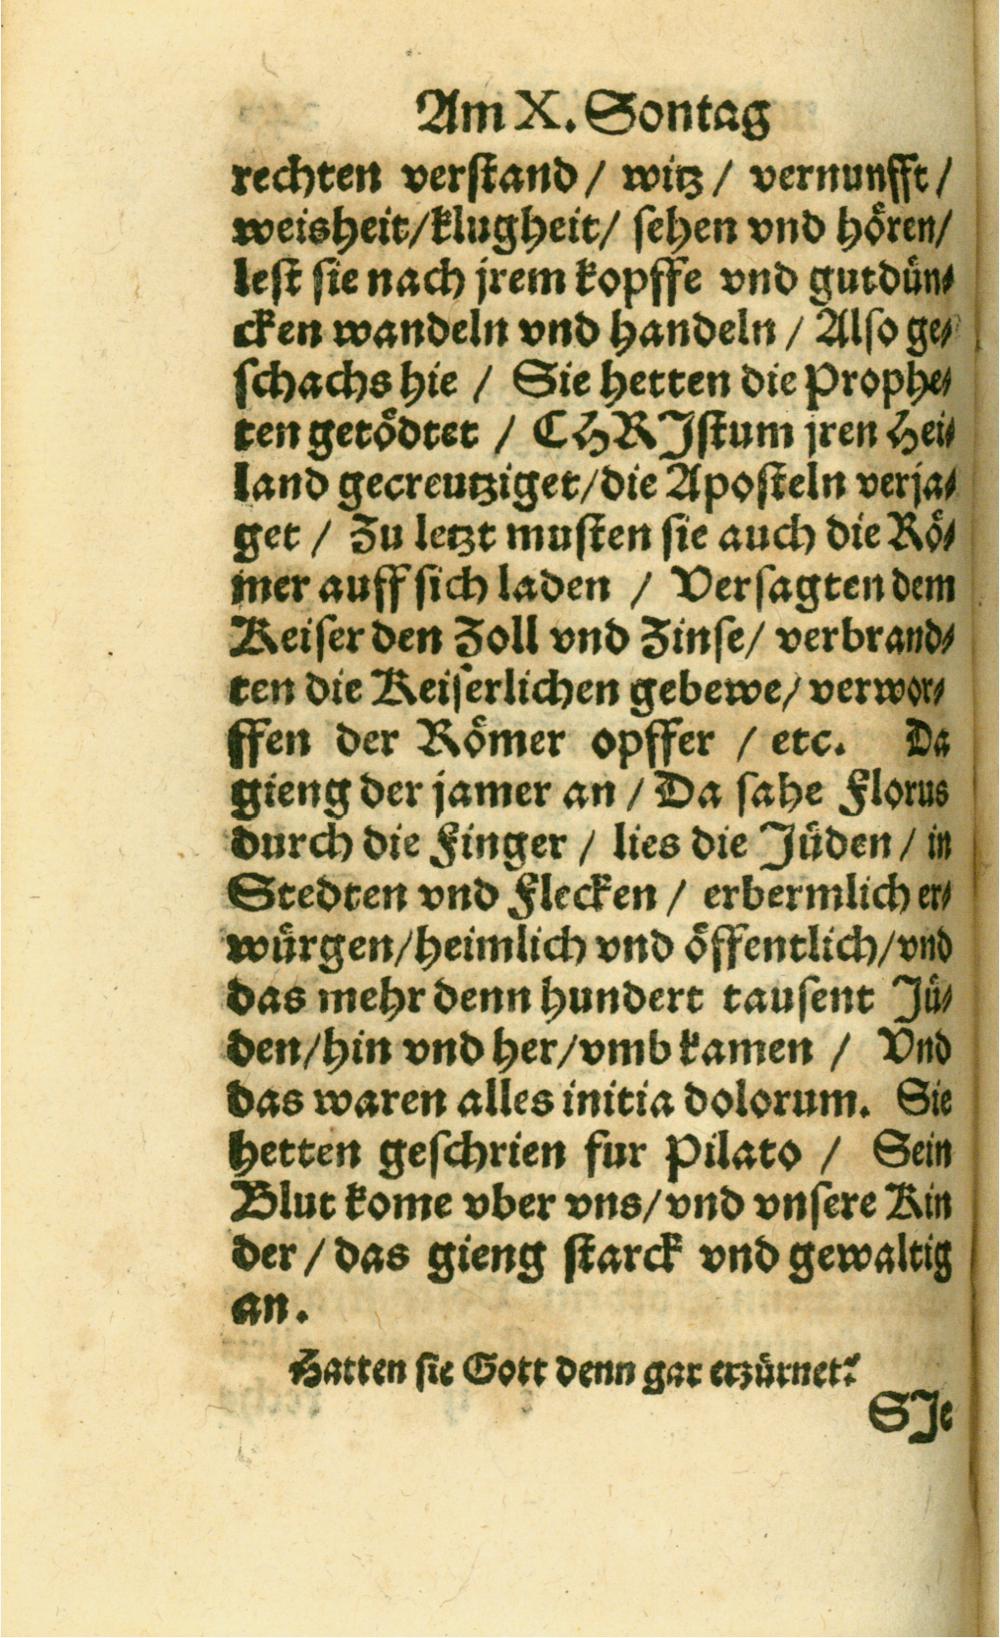 Am X. Sontag
rechten verstand / witz / vernunfft /
weisheit/klugheit/ sehen vnd hören/
lest sie nach jrem kopffe vnd gutdün⸗
cken wandeln vnd handeln / Also ge⸗
schachs hie / Sie hetten die Prophe⸗
ten getödtet / CHRJstum jren Hei⸗
land gecreutziget/die Aposteln verja⸗
get / Zu letzt musten sie auch die Rö⸗
mer auff sich laden / Versagten dem
Keiser den Zoll vnd Zinse/ verbrand⸗
ten die Keiserlichen gebewe/ verwor⸗
ffen der Römer opffer / etc. Da
gieng der jamer an / Da sahe Florus
durch die Finger / lies die Jüden / in
Stedten vnd Flecken / erbermlich er⸗
würgen/heimlich vnd öffentlich/vnd
das mehr denn hundert tausent Jü⸗
den/hin vnd her/vmb kamen / Vnd
das waren alles initia dolorum. Sie
hetten geschrien fur Pilato / Sein
Blut kome vber vns/vnd vnsere Kin
der / das gieng starck vnd gewaltig
an.
Hatten sie Gott denn gar erzürnet?
SJe